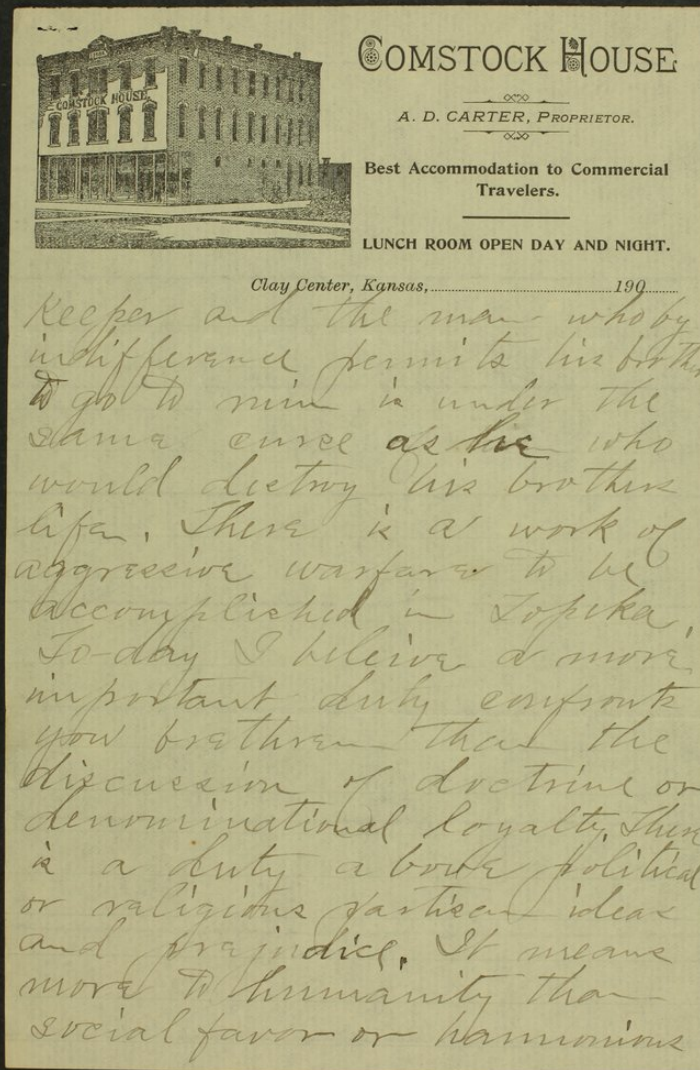 COMSTOCK HOUSE
COMSTOCK HOUSE
A. D. CARTER, PROPRIETOR.
Best Accommodation to Commercial
Travelers.
LUNCH ROOM OPEN DAY AND NIGHT.
Clay Center, Kansas, 190
Keeper and the man who by
indifference permits his brother
to go to ruin is under the
same curse as he who
would destroy his brothers
life. There is a work of
aggressive warfare to be
accomplished in Topeka,
To-day I beleive a more
important duty confronts
you brethren than the
discussion of doctrine or
denominational loyalty. There
is a duty above political
or religious partisan ideas
and prejudice. It means
more to humanity than
social favor or harmonious